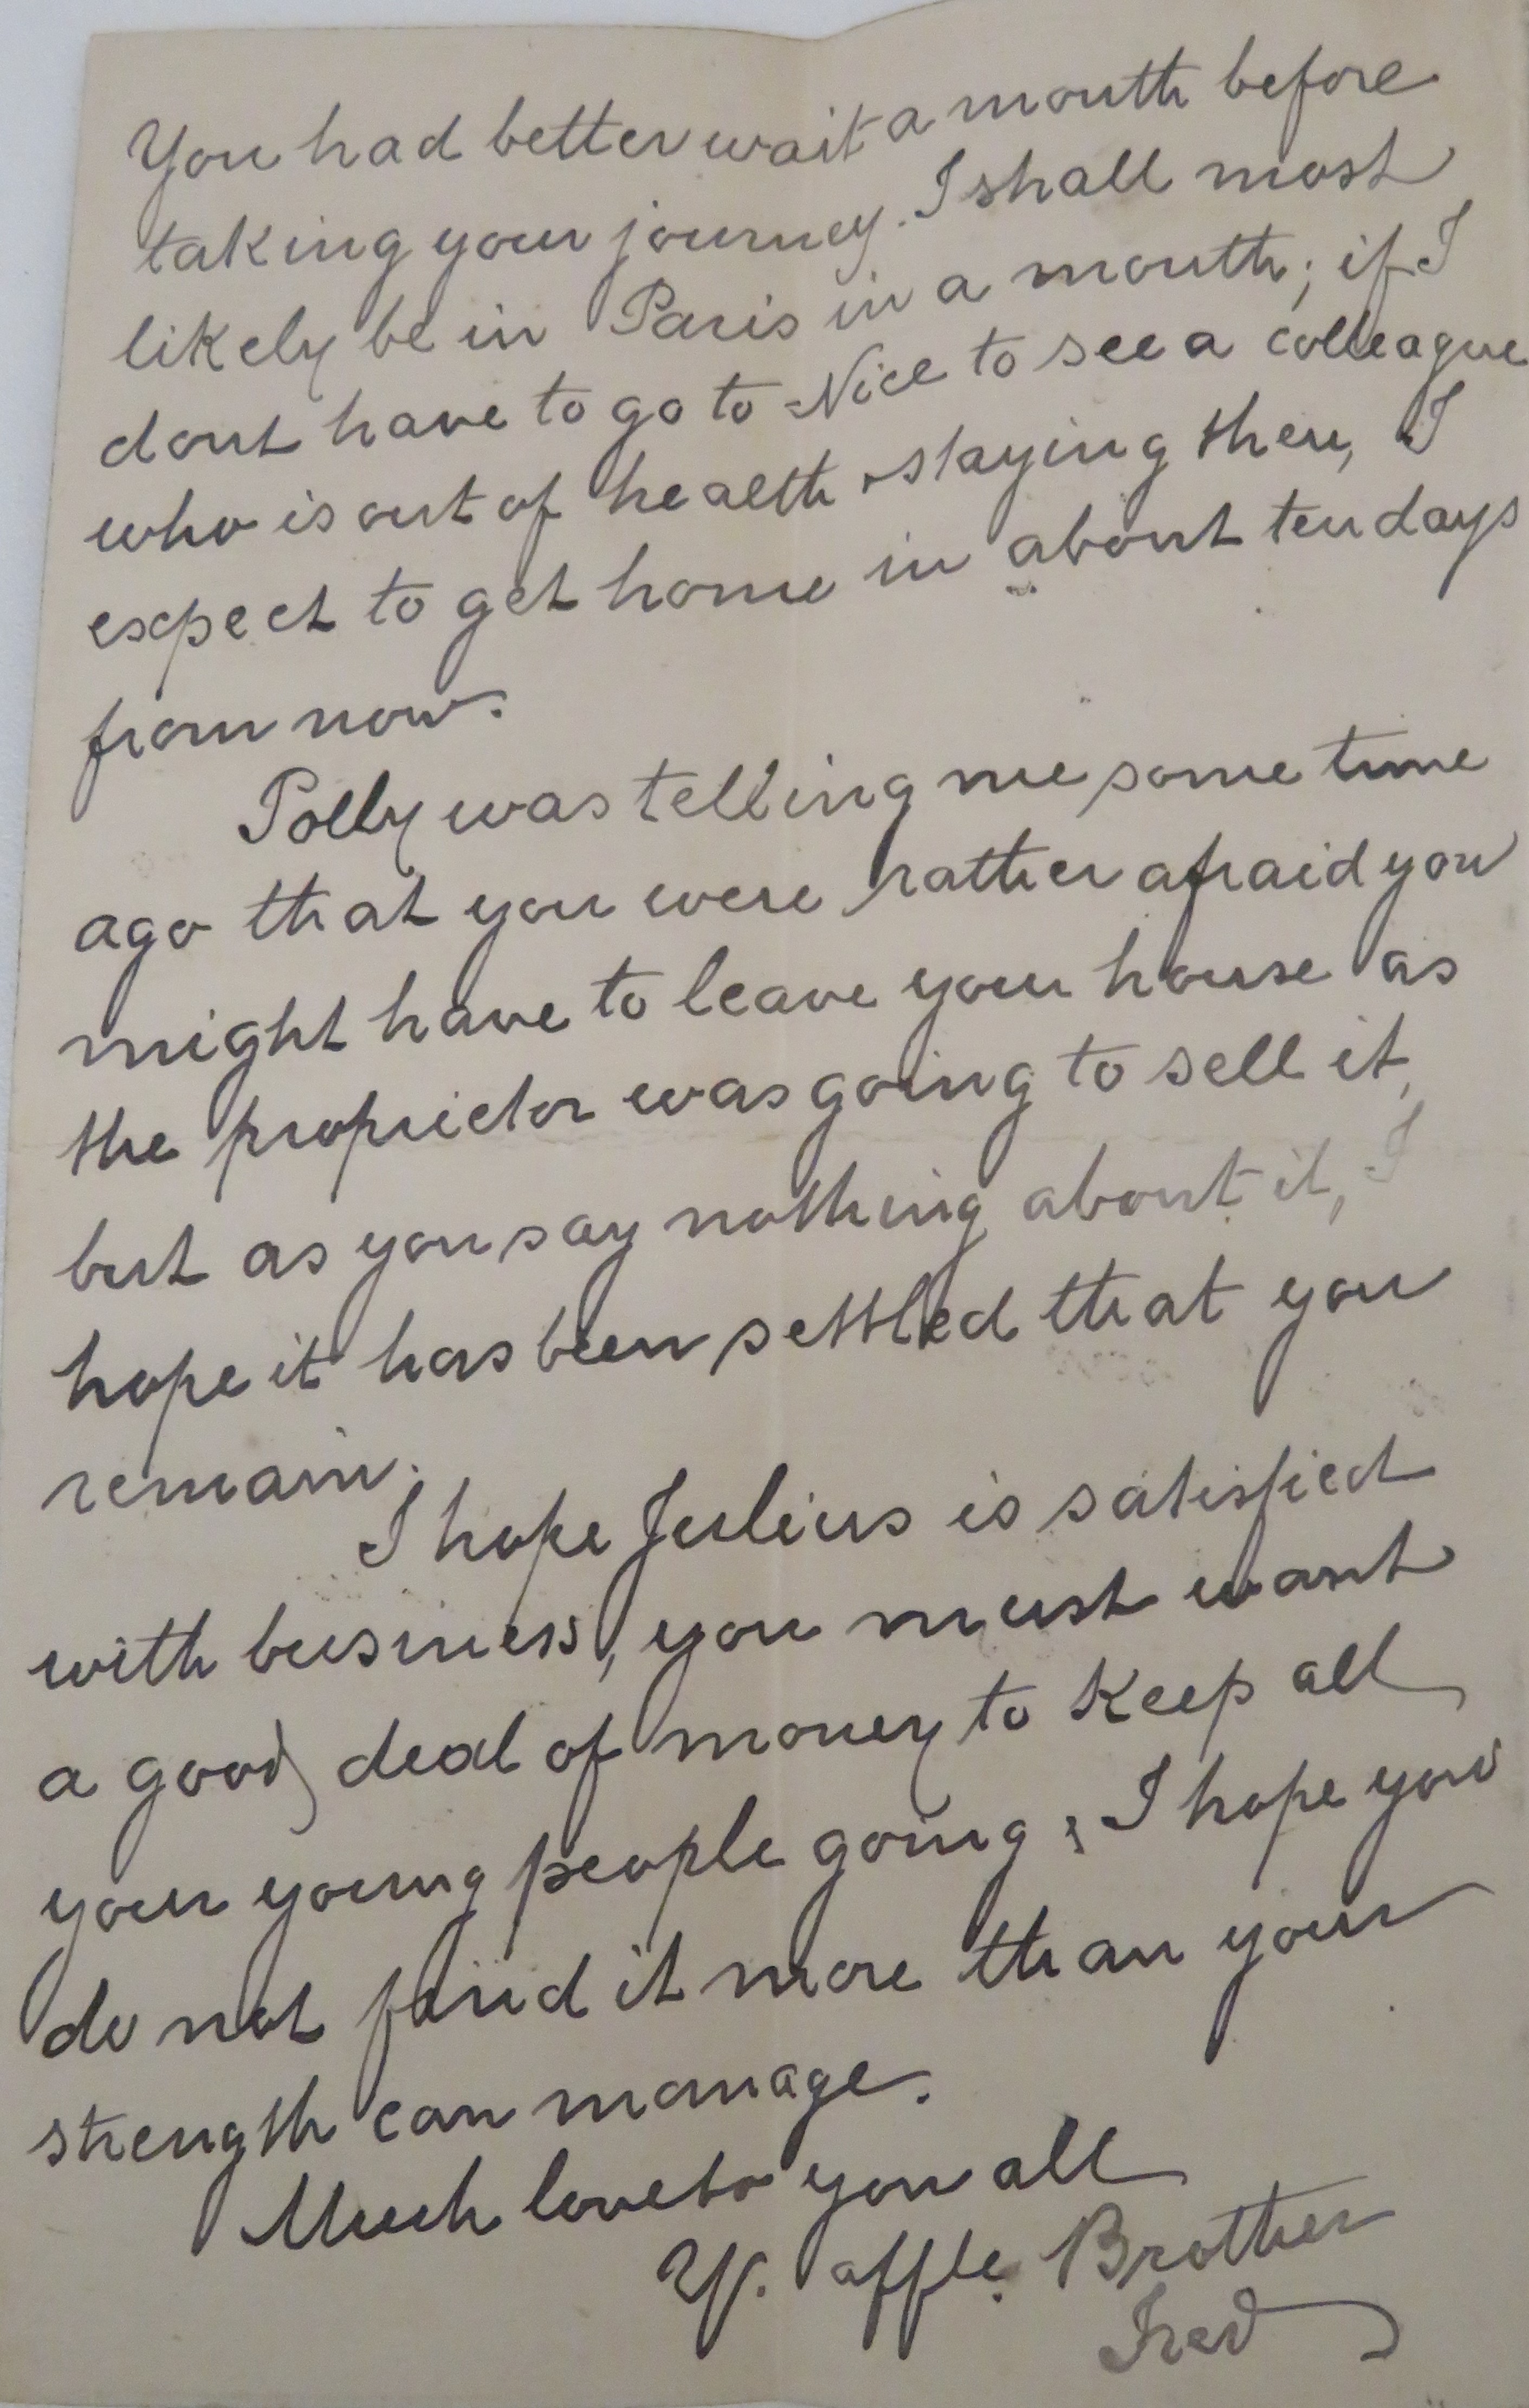 You had better wait a month before
taking your journey. I shall most
likely be in Paris in a month; if I
dont have to go to Nice to see a colleague
who is out of health staying there, I
expect to get home in about ten days
from now.
Polly was telling me some time
ago that you were rather afraid you
might have to leave your house as
the proprietor was going to sell it,
but as you say nothing about it, I
hope it has been settled that you
remain.
I hope Julius is satisfied
with business, you must want
a good deal of money to keep all
your young people going; I hope you
do not find it more than your
strength can manage.
Much love to you all
Yr. affte. Brother
Fred